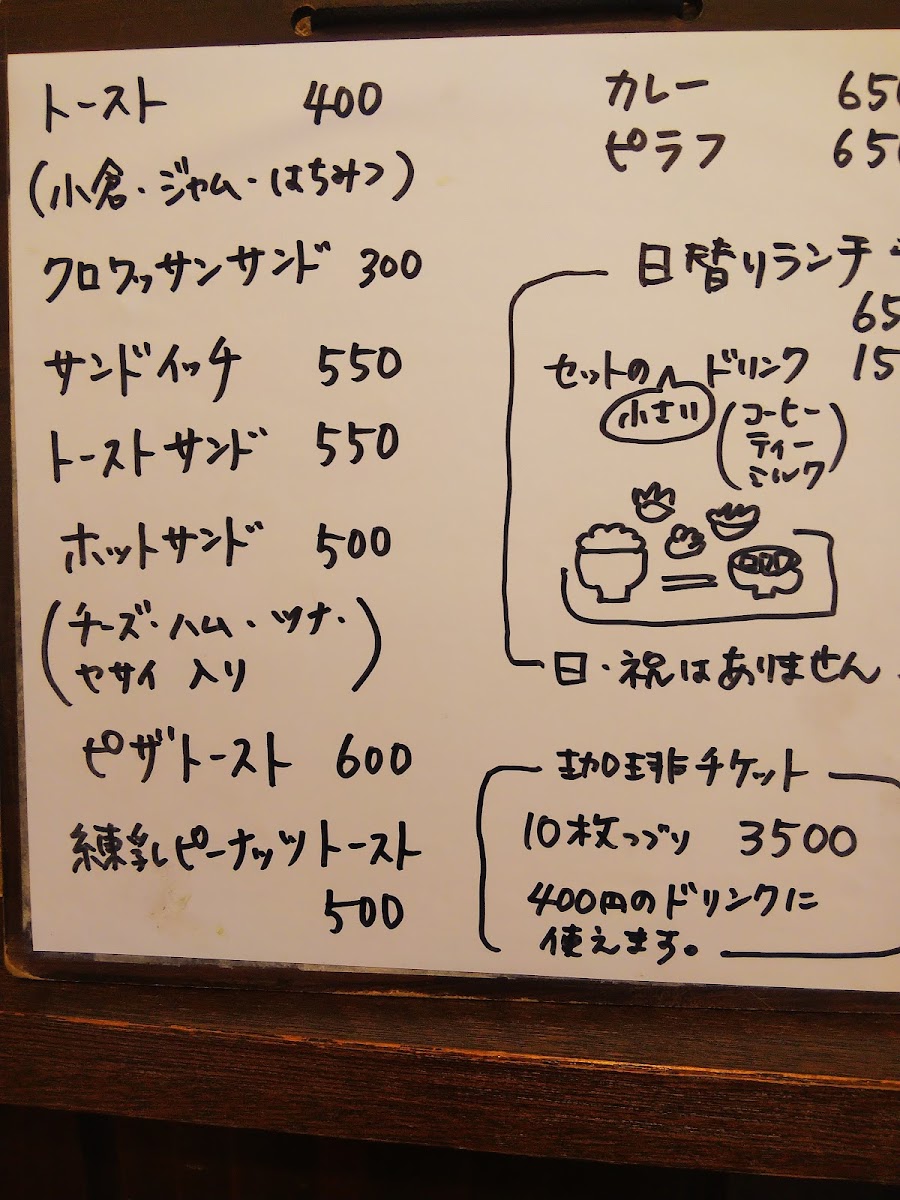 トースト 400
(小倉・ジャム・はちみつ)
クロワッサンサンド 300
サンドイッチ 550
トーストサンド 550
ホットサンド 500
(チーズ・ハム・ツナ・
ヤサイ 入り)
ピザトースト 600
練乳ピーナッツトースト
500
カレー 650
ピラフ 650
日替りランチ
65
セットの ドリンク 15
小さい
(コーヒー
ティー
ミルク)
日・祝はありません
珈琲チケット
10枚つづり 3500
400円のドリンクに
使えます。